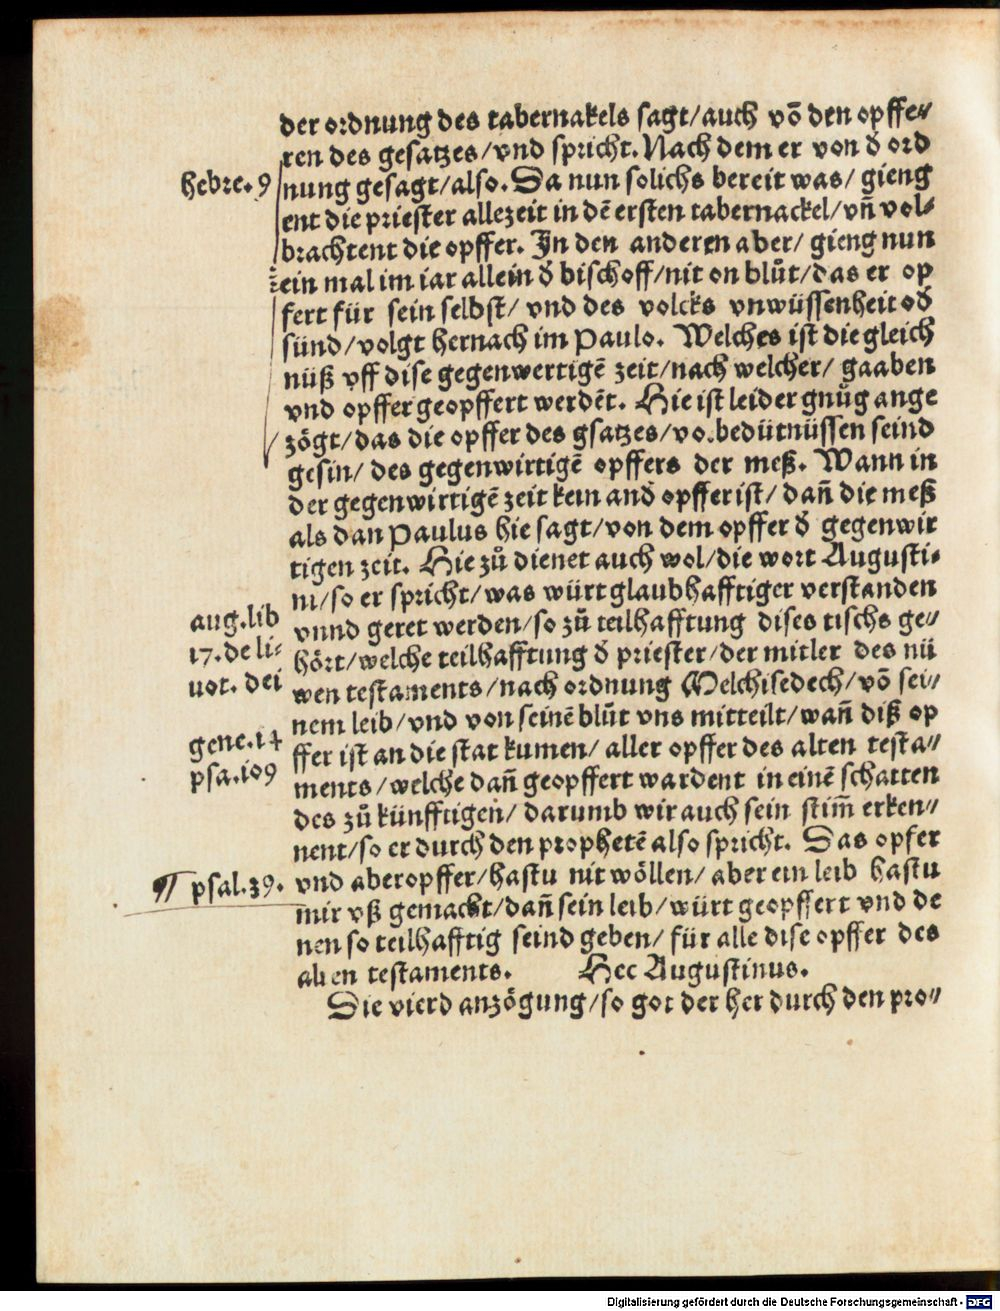 der ordnung des tabernakels sagt/auch vō den opffe⸗
ren des gesatzes/vnd spricht. Nach dem er von đ ord
hebre. 9
nung gesagt/also. Da nun solichs bereit was/ gieng
ent die priester allezeit in dē ersten tabernackel/vn̄ vol⸗
brachtent die opffer. In den anderen aber/ gieng nun
ein mal im iar allein đ bischoff/nit on blůt/das er op
fert für sein selbst/ vnd des volcks vnwüssenheit ođ
sünd/volgt hernach im Paulo. Welches ist die gleich
nüß vff dise gegenwertigē zeit/nach welcher/ gaaben
vnd opffer geopffert werdēt. Hie ist leider gnůg ange
zögt/das die opffer des gsatzes/vo.bedütnüssen seind
gesin/ des gegenwirtigē opffers der meß. Wann in
der gegenwirtigē zeit kein anđ opffer ist/ dan̄ die meß
als dan Paulus hie sagt/von dem opffer đ gegenwir
tigen zeit. Hie zů dienet auch wol/die wort Augusti⸗
ni/so er spricht/was würt glaubhafftiger verstanden
aug.lib
17. de li⸗
uot. dei
vnnd geret werden/so zů teilhafftung dises tischs ge⸗
hört/welche teilhafftung đ priester/der mitler des nü
wen testaments/nach ordnung Melchisedech/vō sei⸗
nem leib/vnd von seinē blůt vns mitteilt/wan̄ diß op
gene.14
psa.109
ffer ist an die stat kumen/ aller opffer des alten testa⸗
ments/welche dan̄ geopffert wardent in einē schatten
des zů künfftigen/ darumb wir auch sein stim̄ erken⸗
nent/so er durch den prophetē also spricht. Das opfer
¶ psal.39.
vnd aberopffer/hastu nit wöllen/ aber ein leib hastu
mir vß gemacht/dan̄ sein leib/würt geopffert vnd de
nen so teilhafftig seind geben/ für alle dise opffer des
alten testaments. Hec Augustinus.
Die vierd anzögung/so got der her durch den pro⸗
Digitalisierung gefördert durch die Deutsche Forschungsgemeinschaft - DFG